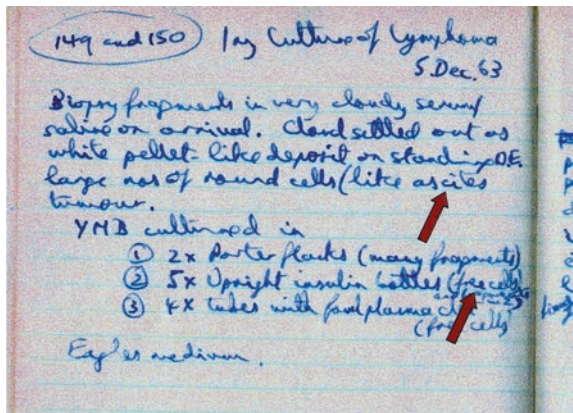 149 and 150 1ry Culture of Lymphoma
5 Dec. 63
Biopsy fragments in very cloudy serum
saline on arrival. Cloud settled out as
white pellet-like deposit on standing O.E.
large nos of round cells (like ascites
tumour.
YMB cultured in
① 2x Porter flasks (many fragments)
② 5x Upright insulin bottles (free cells
③ 4x tubes with fowl plasma
(free cells
Eagles medium.